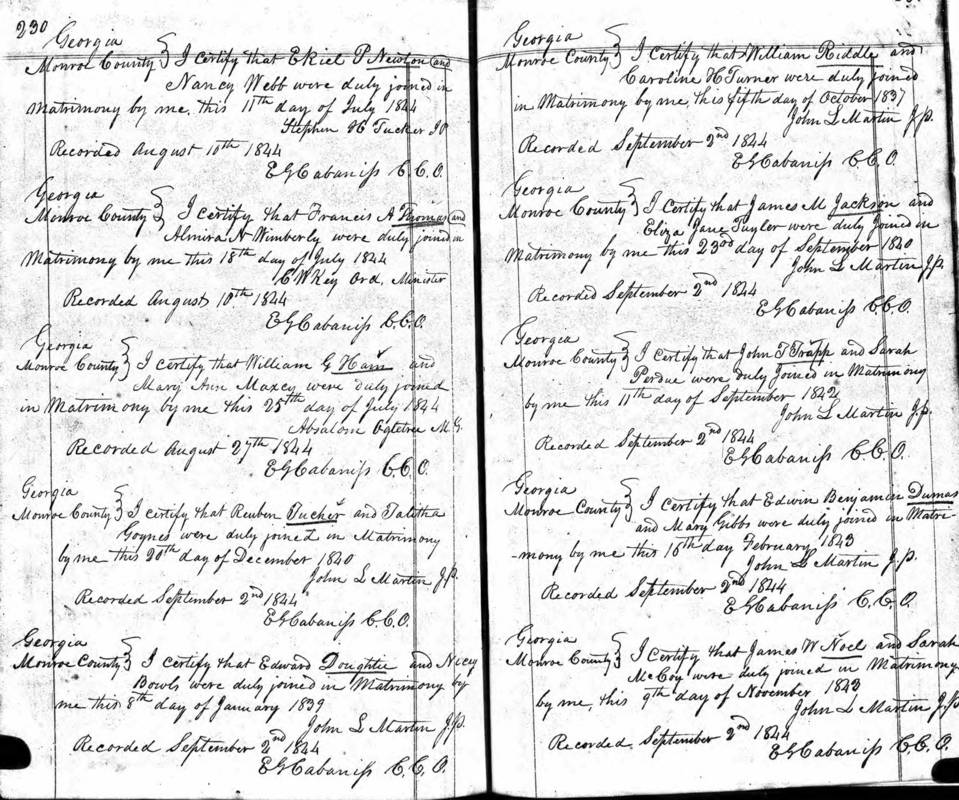 230
Georgia
Monroe County } I certify that Ekiel P Newton and
Nancy Webb were duly joined in
Matrimony by me, this 11th day of July 1844
Stephen H Tucker JP
Recorded August 10th 1844
E G Cabaniss C.C.O.
Georgia
Monroe County } I certify that Francis A Thomas and
Almira N Wimberly were duly joined in
Matrimony by me this 18th day of July 1844
C W Key Ord. Minister
Recorded August 10th 1844
E G Cabaniss C.C.O.
Georgia
Monroe County } I certify that William G Ham and
Mary Ann Maxcy were duly joined
in Matrimony by me this 25th day of July 1844
Absalom Ogletree M.G.
Recorded August 27th 1844
E G Cabaniss C.C.O.
Georgia
Monroe County } I certify that Reuben Tucker and Talitha
Goynes were duly joined in Matrimony
by me this 20th day of December 1840
John L Martin J.P.
Recorded September 2nd 1844
E G Cabaniss C.C.O.
Georgia
Monroe County } I certify that Edward Doughtie and Nicy
Bowls were duly joined in Matrimony by
me this 8th day of January 1839
John L Martin J.P.
Recorded September 2nd 1844
E G Cabaniss C.C.O.
Georgia
Monroe County } I certify that William Riddle and
Caroline H Turner were duly joined
in Matrimony by me, this fifth day of October 1837
John L Martin J.P.
Recorded September 2nd 1844
E G Cabaniss C.C.O.
Georgia
Monroe County } I certify that James M Jackson and
Eliza Jane Taylor were duly Joined in
Matrimony by me this 23rd day of September 1840
John L Martin J.P.
Recorded September 2nd 1844
E G Cabaniss C.C.O.
Georgia
Monroe County } I certify that John T Trapp and Sarah
Perdue were duly Joined in Matrimony
by me this 11th day of September 1842
John L Martin J.P.
Recorded September 2nd 1844
E G Cabaniss C.C.O.
Georgia
Monroe County } I certify that Edwin Benjamin Dumas
and Mary Gibbs were duly joined in Matri-
-mony by me this 16th day February 1843
John L Martin J.P.
Recorded September 2nd 1844
E G Cabaniss C.C.O.
Georgia
Monroe County } I certify that James W Noel and Sarah
McCoy were duly joined in Matrimony
by me, this 9th day of November 1843
John L Martin J.P.
Recorded September 2nd 1844
E G Cabaniss C.C.O.